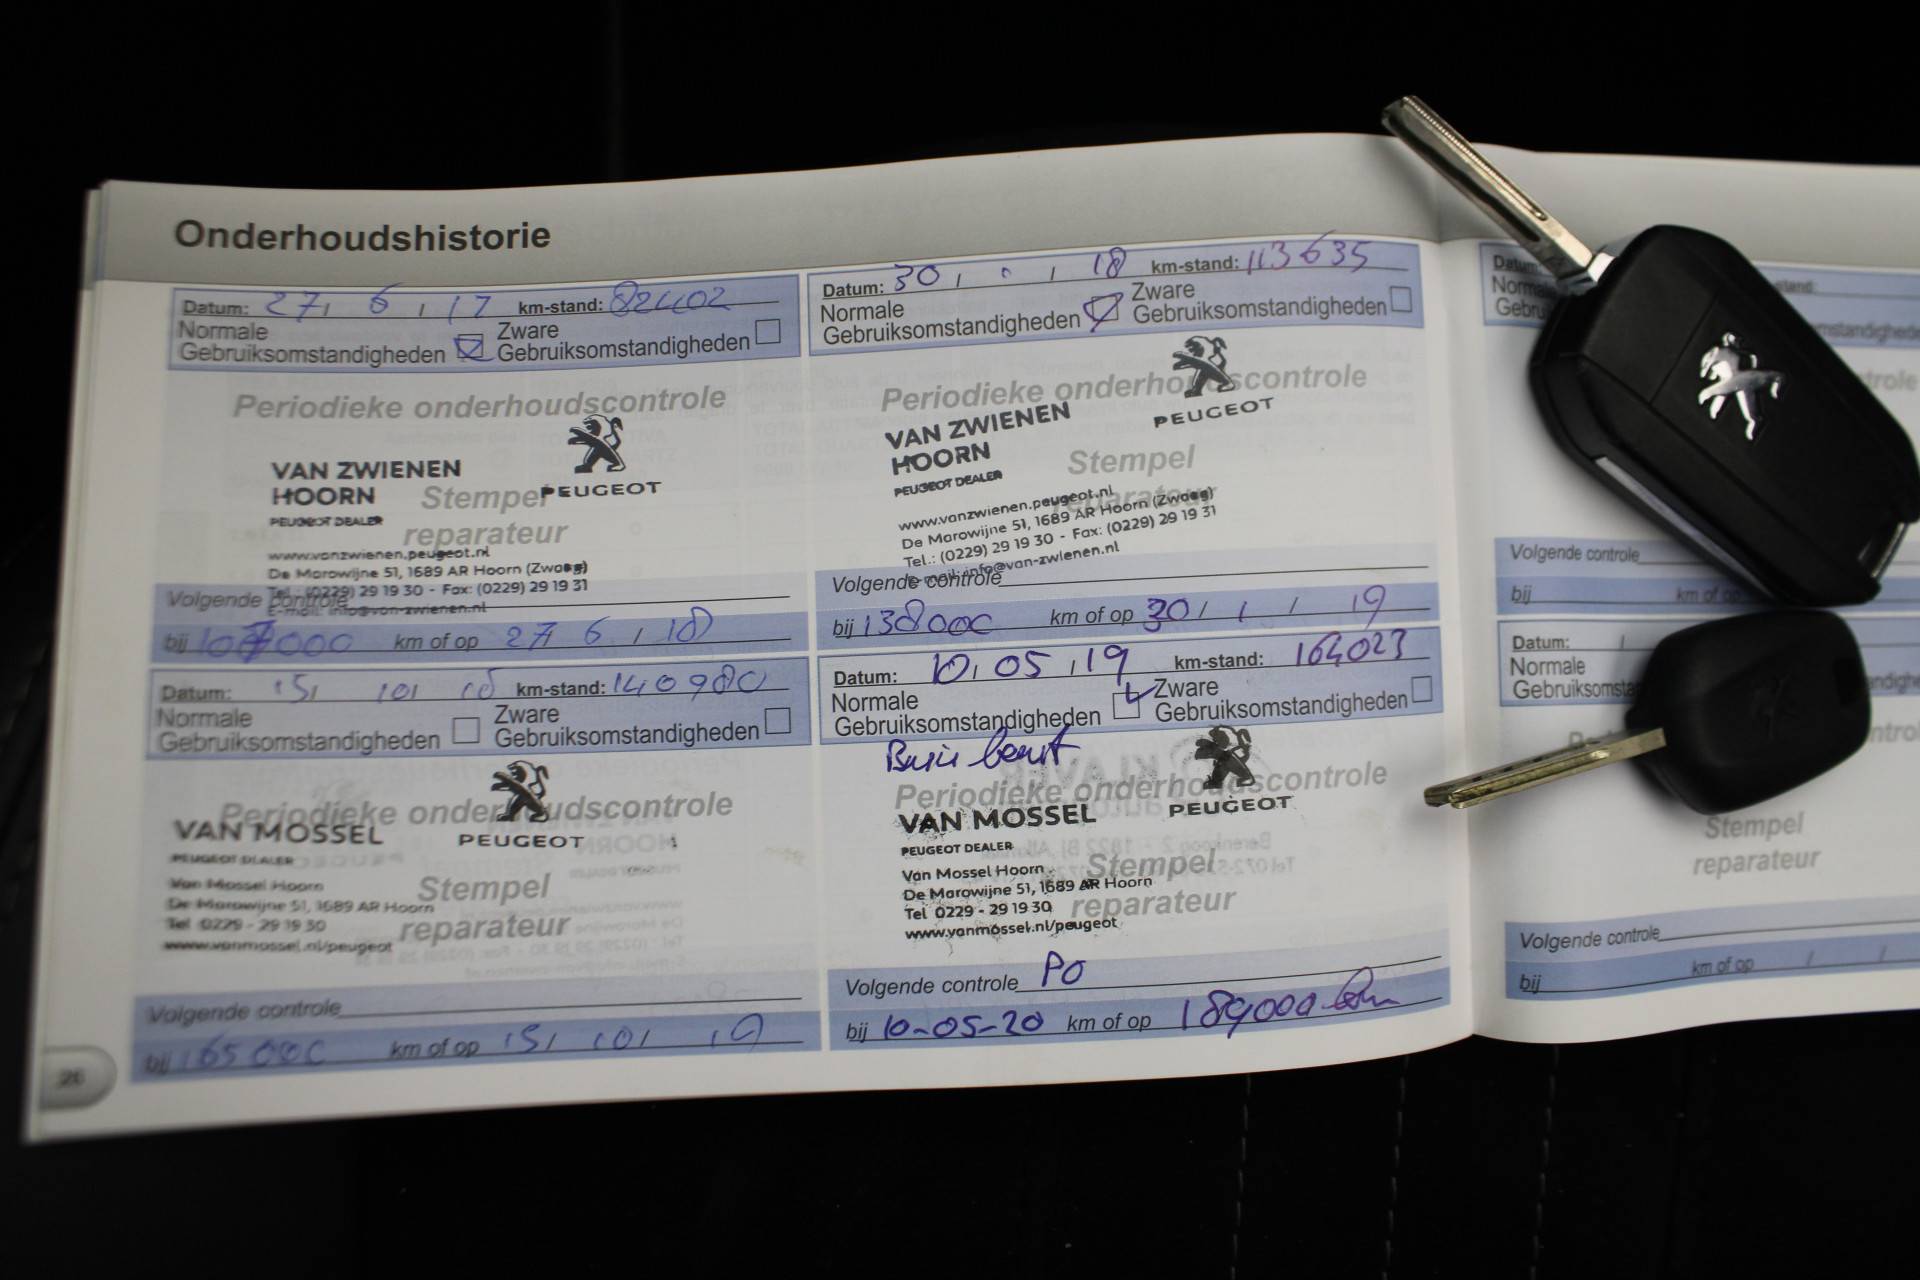 Onderhoudshistorie
Datum: 27/ 6 / 17 km-stand: 82402
Normale Zware
Gebruiksomstandigheden Gebruiksomstandigheden
Periodieke onderhoudscontrole
PEUGEOT
VAN ZWIENEN
HOORN
PEUGEOT DEALER
Stempel
reparateur
www.vanzwienen.peugeot.nl
De Marowijne 51, 1689 AR Hoorn (Zwaag)
Tel.: (0229) 29 19 30 - Fax: (0229) 29 19 31
E-mail: info@van-zwienen.nl
Volgende controle
bij 107000 km of op 27/ 6 / 18
Datum: 30 / / 18 km-stand: 113635
Normale Zware
Gebruiksomstandigheden Gebruiksomstandigheden
Periodieke onderhoudscontrole
PEUGEOT
VAN ZWIENEN
HOORN
PEUGEOT DEALER
Stempel
reparateur
www.vanzwienen.peugeot.nl
De Marowijne 51, 1689 AR Hoorn (Zwaag)
Tel.: (0229) 29 19 30 - Fax: (0229) 29 19 31
E-mail: info@van-zwienen.nl
Volgende controle
bij 138000 km of op 30 / 1 / 19
Datum: 15/ 10/ 18 km-stand: 140980
Normale Zware
Gebruiksomstandigheden Gebruiksomstandigheden
Periodieke onderhoudscontrole
VAN MOSSEL PEUGEOT
PEUGEOT DEALER
Van Mossel Hoorn
De Marowijne 51, 1689 AR Hoorn
Tel 0229 - 29 19 30
www.vanmossel.nl/peugeot
Stempel
reparateur
Volgende controle
bij 165000 km of op 15/ 10/ 19
Datum: 10/ 05 / 19 km-stand: 164023
Normale Zware
Gebruiksomstandigheden Gebruiksomstandigheden
Periodieke onderhoudscontrole
VAN MOSSEL PEUGEOT
PEUGEOT DEALER
Van Mossel Hoorn
De Marowijne 51, 1689 AR Hoorn
Tel 0229 - 29 19 30
www.vanmossel.nl/peugeot
Stempel
reparateur
Volgende controle PO
bij 10-05-20 km of op 189,000
26
Volgende controle
bij km of op
Datum: /
Normale
Stempel
reparateur
Volgende controle
bij km of op / /